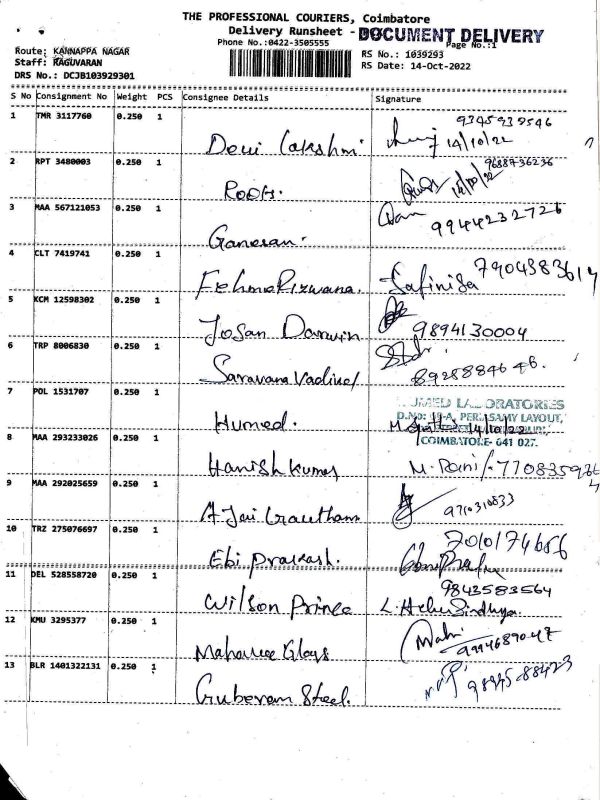 THE PROFESSIONAL COURIERS, Coimbatore
Delivery Runsheet - DOCUMENT DELIVERY
Phone No.:0422-3505555 Page No.:1
Route: KANNAPPA NAGAR RS No.: 1039293
Staff: RAGUVARAN RS Date: 14-Oct-2022
DRS No.: DCJB103929301
S No Consignment No Weight PCS Consignee Details Signature
1 TMR 3117760 0.250 1 9345939546
Devi Lakshmi 14/10/22
2 RPT 3480003 0.250 1 9688736236
Roots. 14/10/22
3 MAA 567121053 0.250 1 9944232726
Ganesan.
4 CLT 7419741 0.250 1
Fehmo Rizwana. Safinisa 7904383614
5 KCM 12598302 0.250 1
Josan Darwin 9894130004
6 TRP 8006830 0.250 1
Saravana Vadivel 8928884646.
7 POL 1531707 0.250 1 LABORATORIES
D.No: PERIASAMY LAYOUT,
Humed. 14/10/22
COIMBATORE- 641 027.
8 MAA 293233026 0.250 1
Harish kumar M. Rani
9 MAA 292025659 0.250 1
A. Jai Grautham 9710310833
10 TRZ 275076697 0.250 1 7010174656
Ebi Prakash.
11 DEL 528558720 0.250 1 9843583564
Wilson Prince
12 KMU 3295377 0.250 1 Mahi
Mahavee Glass 9994689047
13 BLR 1401322131 0.250 1
Guberan Steel. 98945-88423